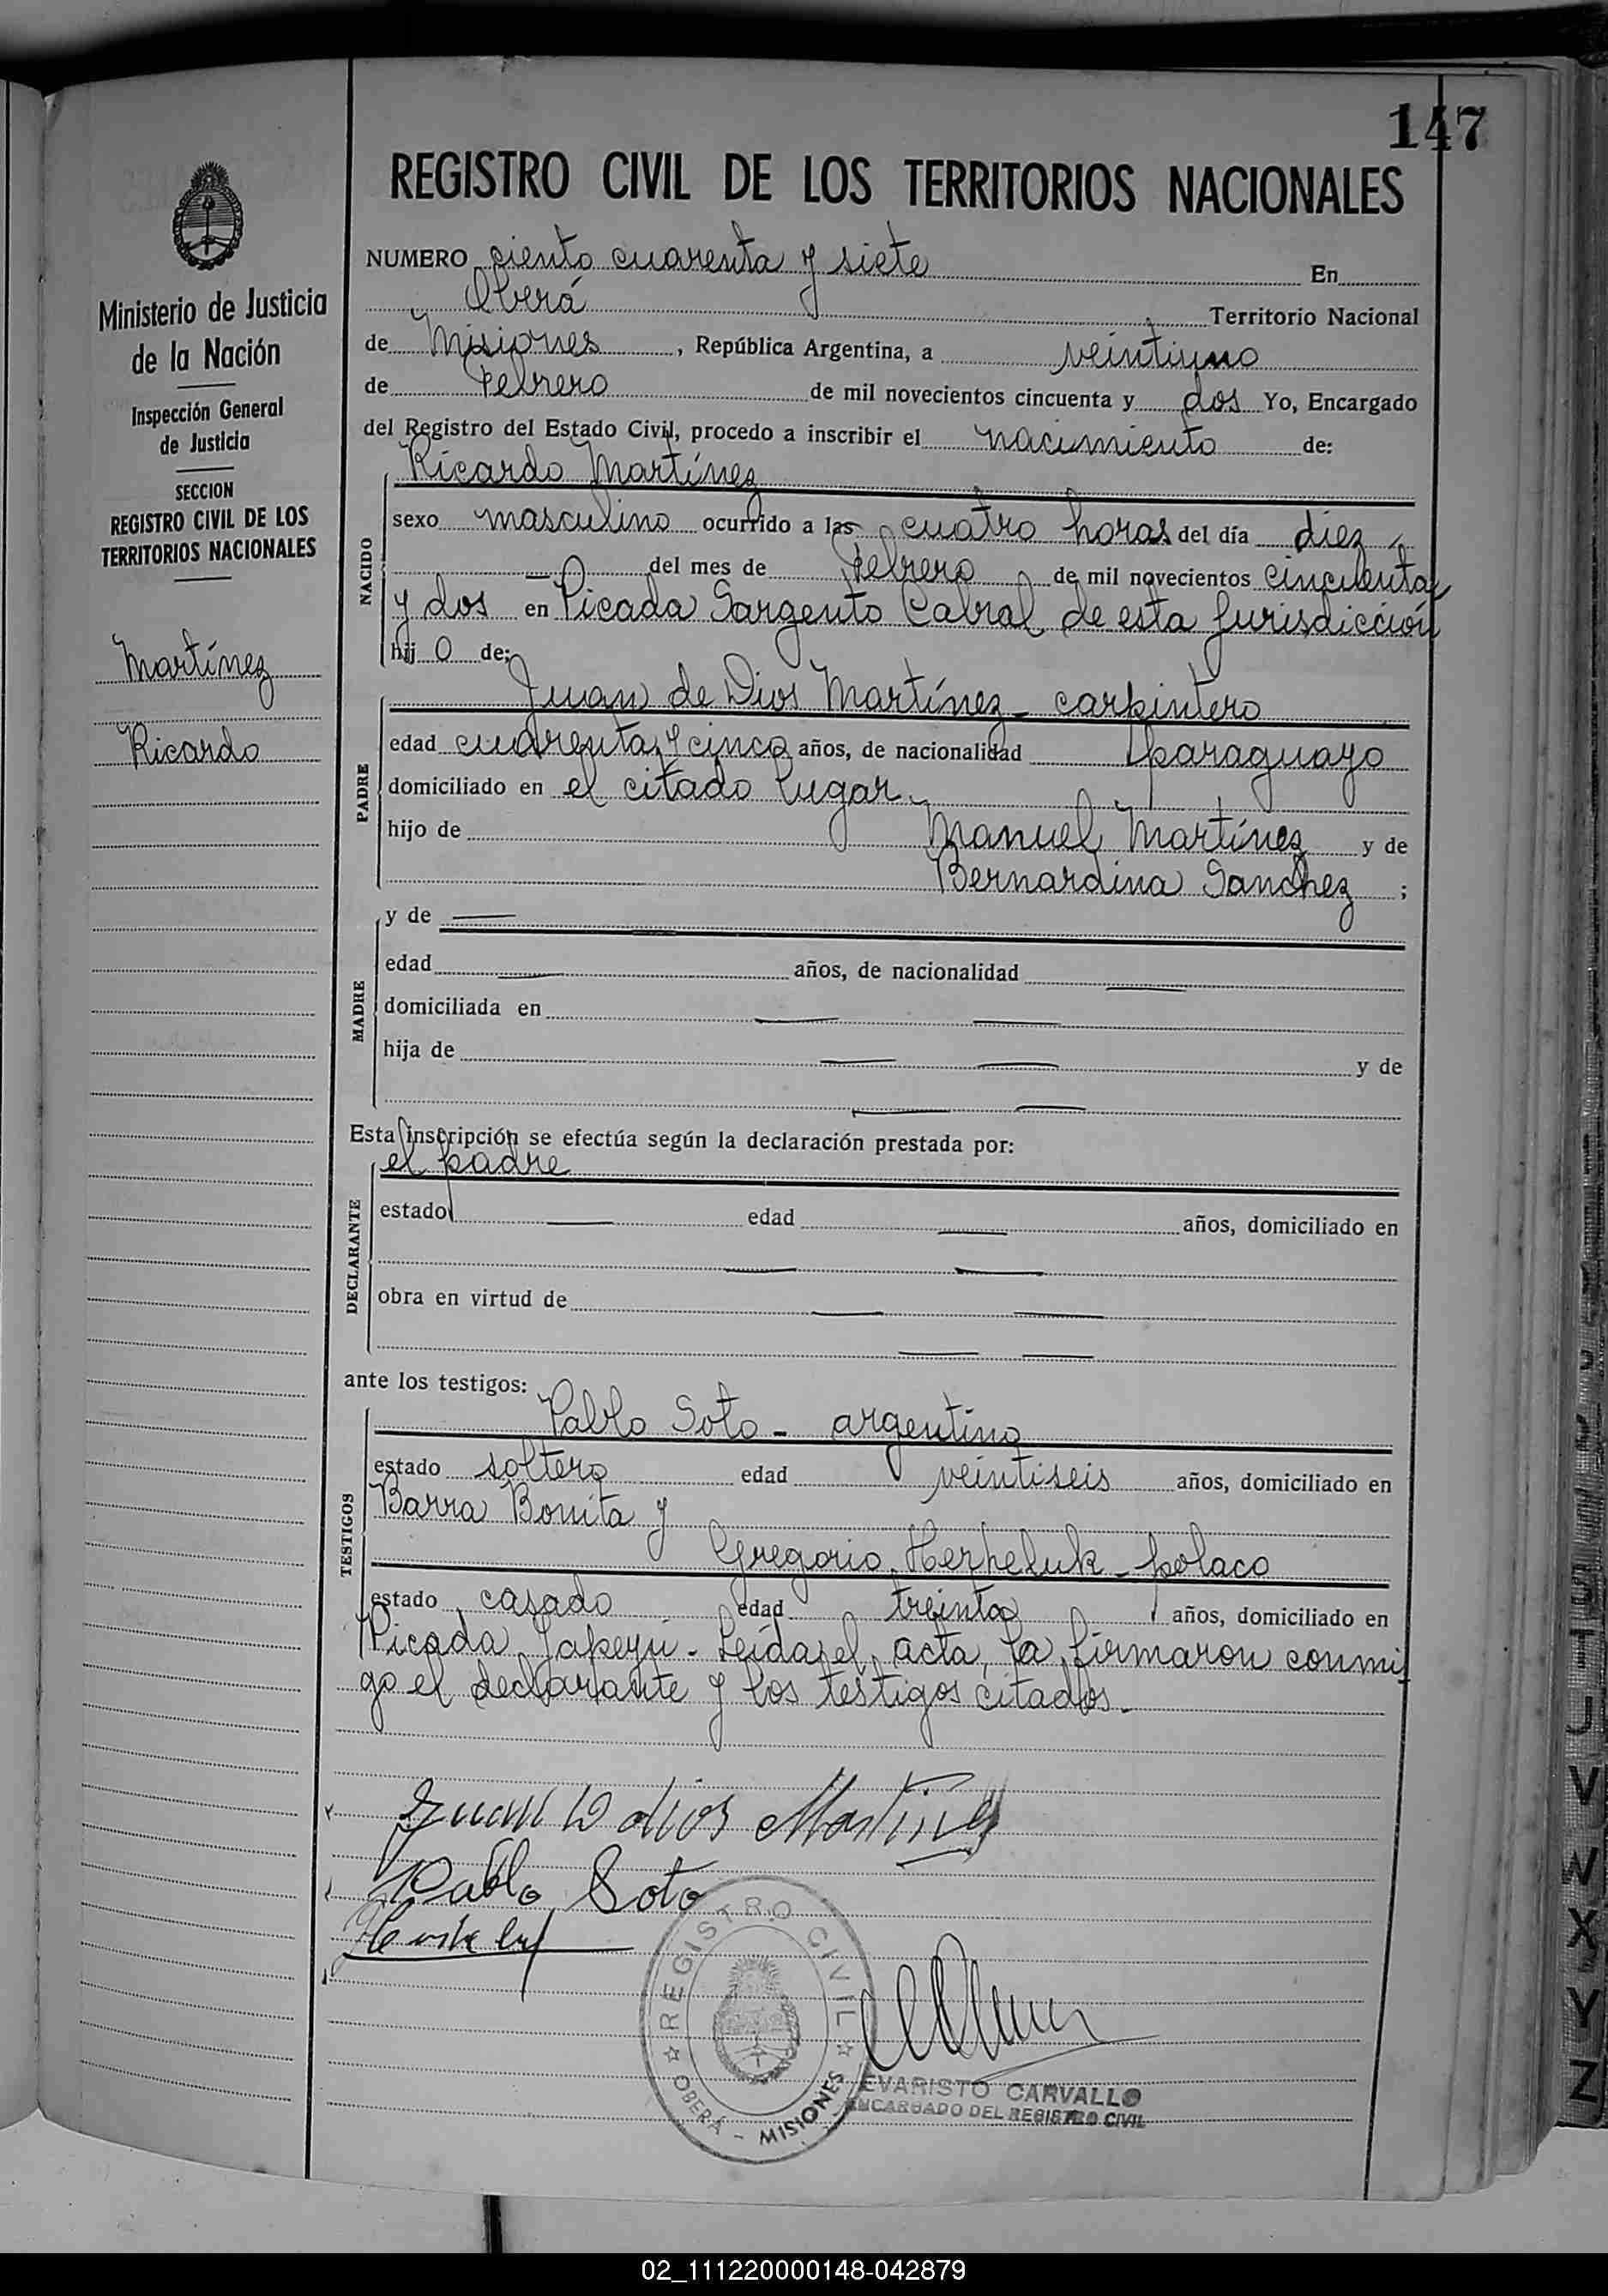 147
REGISTRO CIVIL DE LOS TERRITORIOS NACIONALES
Ministerio de Justicia
de la Nación
Inspección General
de Justicia
SECCION
REGISTRO CIVIL DE LOS
TERRITORIOS NACIONALES
Martínez
Ricardo
NUMERO ciento cuarenta y siete En
Oberá Territorio Nacional
de Misiones, República Argentina, a veintiuno
de Febrero de mil novecientos cincuenta y dos Yo, Encargado
del Registro del Estado Civil, procedo a inscribir el nacimiento de:
Ricardo Martínez
NACIDO
sexo masculino ocurrido a las cuatro horas del día diez
del mes de Febrero de mil novecientos cincuenta
y dos en Picada Sargento Cabral de esta Jurisdicción
hij o de:
PADRE
Juan de Dios Martínez - carpintero
edad cuarenta y cinco años, de nacionalidad paraguayo
domiciliado en el citado lugar.
hijo de Manuel Martínez y de
Bernardina Sanchez ;
MADRE
y de —
edad — años, de nacionalidad —
domiciliada en — —
hija de — — y de
— —
Esta inscripción se efectúa según la declaración prestada por:
DECLARANTE
el padre
estado — edad — años, domiciliado en
— —
obra en virtud de — —
— —
ante los testigos:
TESTIGOS
Pablo Soto - argentino
estado soltero edad veintiseis años, domiciliado en
Barra Bonita y
Gregorio - polaco
estado casado edad treinta años, domiciliado en
Picada Yapeyú - Leída el acta, la firmaron conmi
go el declarante y los testigos citados.
Juan D dios Martinez
Pablo Soto
REGISTRO CIVIL
OBERÁ - MISIONES
EVARISTO CARVALLO
ENCARGADO DEL REGISTRO CIVIL
02_111220000148-042879